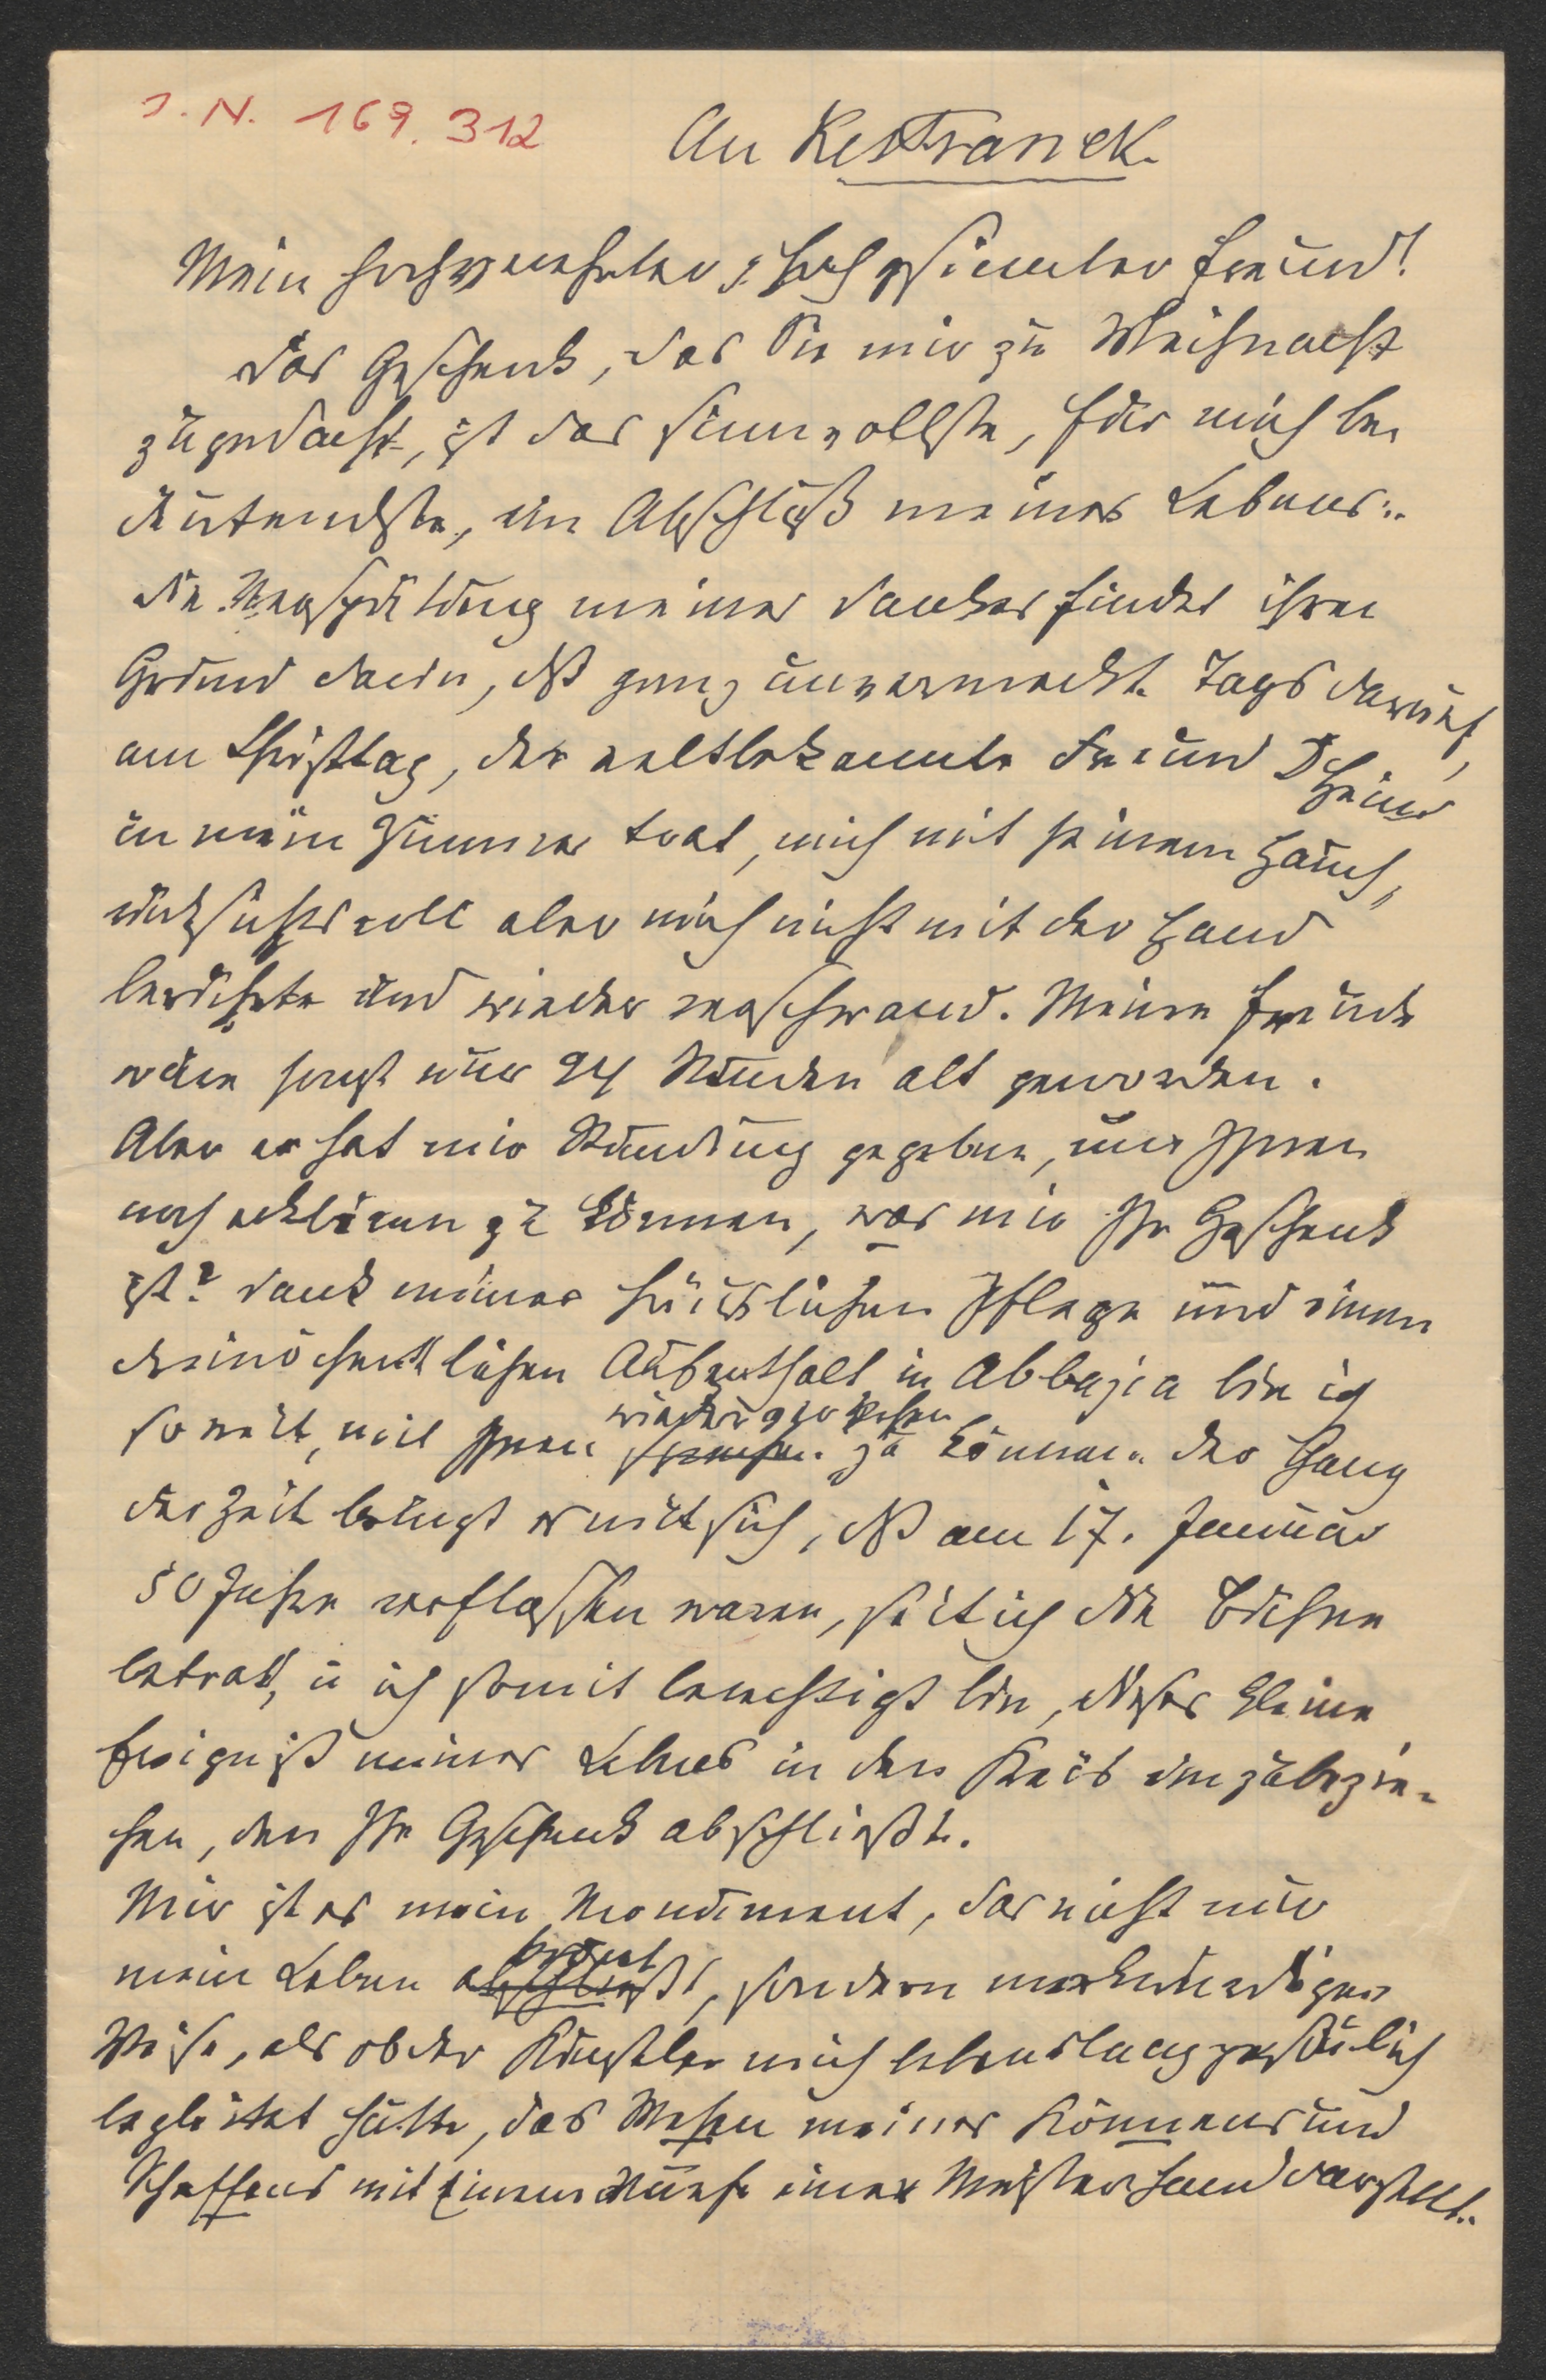 J. N. 169.312
An Kestranek.
Mein hochverehrter, hochgesinnter Freund!
Das Geschenk, das Sie mir zu Weihnacht
zugedacht, ist das sinnvollste, für mich be
deutendste, ein Abschluß meines Lebens.
Die Verspätung meines Dankes findet ihren
Grund darin, dß ganz unvermerkt Tags darauf,
am Christtag, der weltbekannte Freund Hein
in mein Zimmer trat, mich mit seinem Hauch,
rücksichtsvoll aber mich nicht mit der Hand
berührte und wieder verschwand. Meine Freude
wäre sonst nur 24 Stunden alt geworden.
Aber er hat mir Stundung gegeben, um Ihnen
noch erklären zu können, was mir Ihr Geschenk
ist? Dank meiner häuslichen Pflege und einem
dreiwöchentlichen Aufenthalt in Abbazia bin ich
so weit, mit Ihnen
wieder sprechen
sprechen zu können. Der Gang
der Zeit bringt es mit sich, dß am 17. Januar
50 Jahre verflossen waren, seit ich die Bühne
betrat, u ich somit berechtigt bin, dieses kleine
Ereigniß meines Lebens in den Kreis einzubezie-
hen, den Ihr Geschenk abschließt.
Mir ist es mein Monument, das nicht nur
krönt
mein Leben abschließt, sondern merkwürdiger
Weise, als ob der Künstler mich lebenslang persönlich
begleitet hätte, das Wesen meines Könnens und
Schaffens mit einem Wurfe einer Meisterhand darstellt.